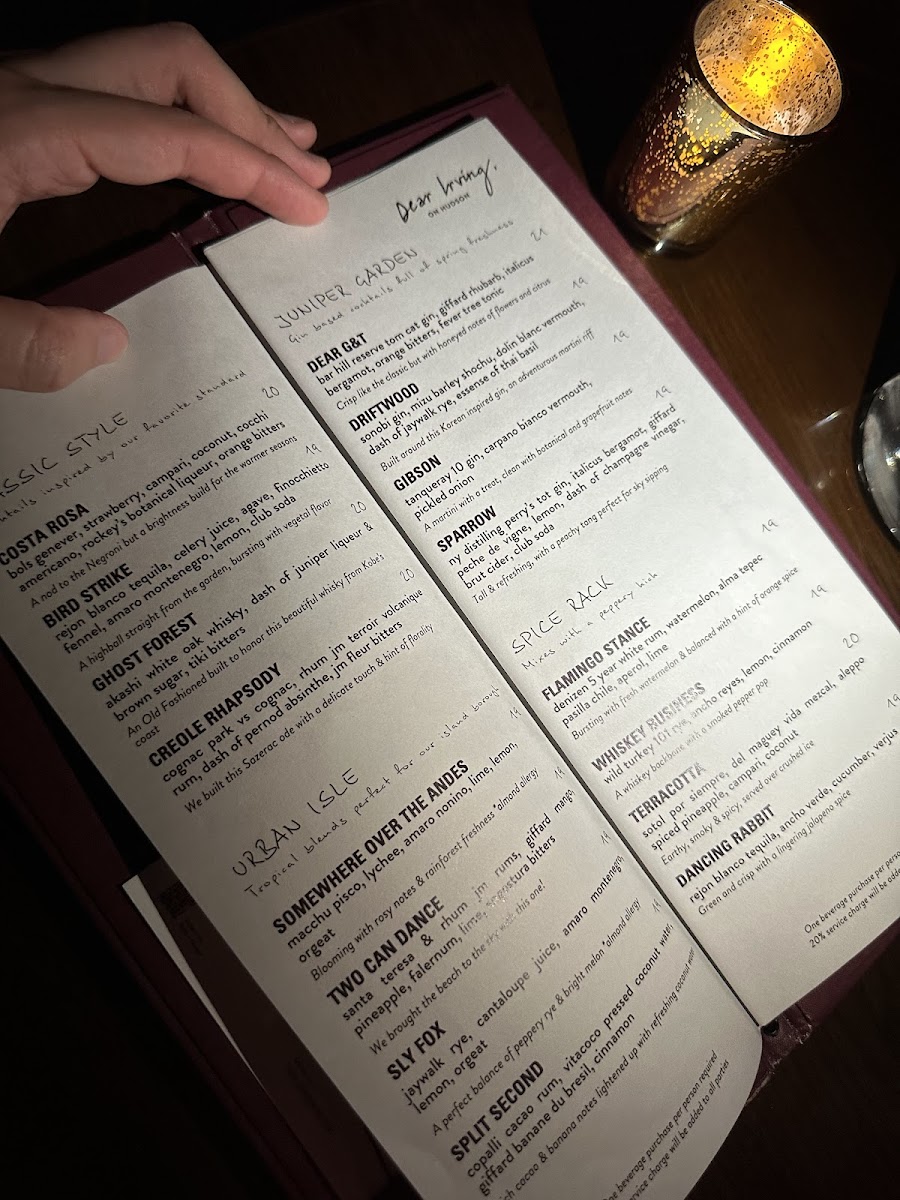 ASSIC STYLE
ktails inspired by our favorite standard
COSTA ROSA 20
bols genever, strawberry, campari, coconut, cocchi
americano, rockey's botanical liqueur, orange bitters
A nod to the Negroni but a brightness build for the warmer seasons
BIRD STRIKE 19
rejon blanco tequila, celery juice, agave, finocchietto
fennel, amaro montenegro, lemon, club soda
A highball straight from the garden, bursting with vegetal flavor
GHOST FOREST 20
akashi white oak whisky, dash of juniper liqueur &
brown sugar, tiki bitters
An Old Fashioned built to honor this beautiful whisky from Kobe's
coast
CREOLE RHAPSODY 20
cognac park vs cognac, rhum jm terroir volcanique
rum, dash of pernod absinthe, jm fleur bitters
We built this Sazerac ode with a delicate touch & hint of florality
URBAN ISLE
Tropical blends perfect for our island borough
SOMEWHERE OVER THE ANDES 19
macchu pisco, lychee, amaro nonino, lime, lemon,
orgeat
Blooming with rosy notes & rainforest freshness *almond allergy
TWO CAN DANCE 19
santa teresa & rhum jm rums, giffard mango,
pineapple, falernum, lime, angostura bitters
We brought the beach to the sky with this one!
SLY FOX 19
jaywalk rye, cantaloupe juice, amaro montenegro,
lemon, orgeat
A perfect balance of peppery rye & bright melon *almond allergy
SPLIT SECOND 19
copalli cacao rum, vitacoco pressed coconut water,
giffard banane du bresil, cinnamon
ich cacao & banana notes lightened up with refreshing coconut water
ne beverage purchase per person required
service charge will be added to all parties
Dear Irving.
ON HUDSON
JUNIPER GARDEN
Gin based cocktails full of spring freshness
DEAR G&T 21
bar hill reserve tom cat gin, giffard rhubarb, italicus
bergamot, orange bitters, fever tree tonic
Crisp like the classic but with honeyed notes of flowers and citrus
DRIFTWOOD 19
sonobi gin, mizu barley shochu, dolin blanc vermouth,
dash of jaywalk rye, essense of thai basil
Built around this Korean inspired gin, an adventurous martini riff
GIBSON 19
tanqueray 10 gin, carpano bianco vermouth,
pickled onion
A martini with a treat, clean with botanical and grapefruit notes
SPARROW 19
ny distilling perry's tot gin, italicus bergamot, giffard
peche de vigne, lemon, dash of champagne vinegar,
brut cider, club soda
Tall & refreshing, with a peachy tang perfect for sky sipping
SPICE RACK
Mixes with a peppery kick
FLAMINGO STANCE 19
denizen 5 year white rum, watermelon, alma tepec
pasilla chile, aperol, lime
Bursting with fresh watermelon & balanced with a hint of orange spice
WHISKEY BUSINESS 19
wild turkey 101 rye, ancho reyes, lemon, cinnamon
A whiskey backbone with a smoked pepper pop
TERRACOTTA 20
sotol por siempre, del maguey vida mezcal, aleppo
spiced pineapple, campari, coconut
Earthy, smoky & spicy, served over crushed ice
DANCING RABBIT 19
rejon blanco tequila, ancho verde, cucumber, verjus
Green and crisp with a lingering jalapeno spice
One beverage purchase per perso
20% service charge will be adde